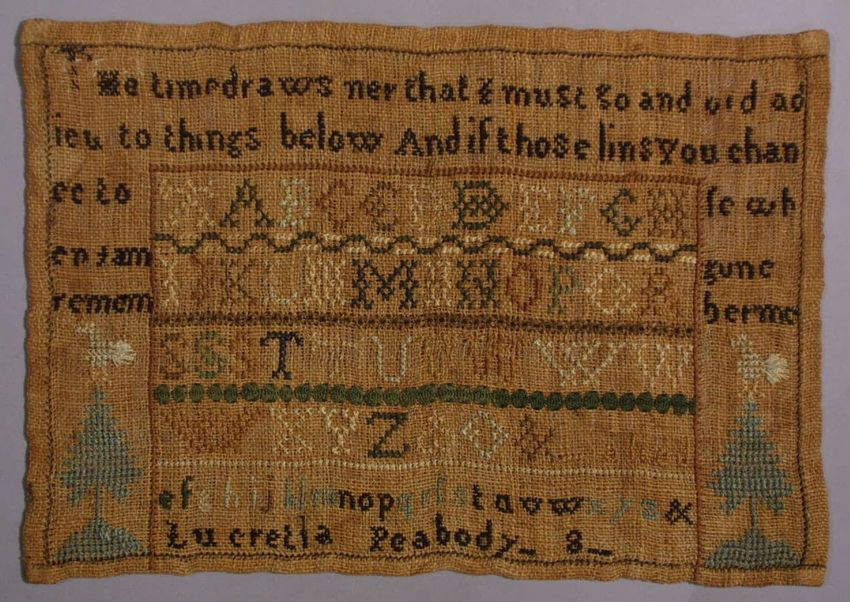 THe timedraws ner that I must go and bid ad
ieu to things below And if those lins you chan
ce to se wh
en I am gone
remem berme
A B C C D E F G H
I K L M N O P Q R
S S S T U W W
X Y Z
e f g h i j k l m n o p q r s t u v w x y z &
Lucretia Peabody_ 8_